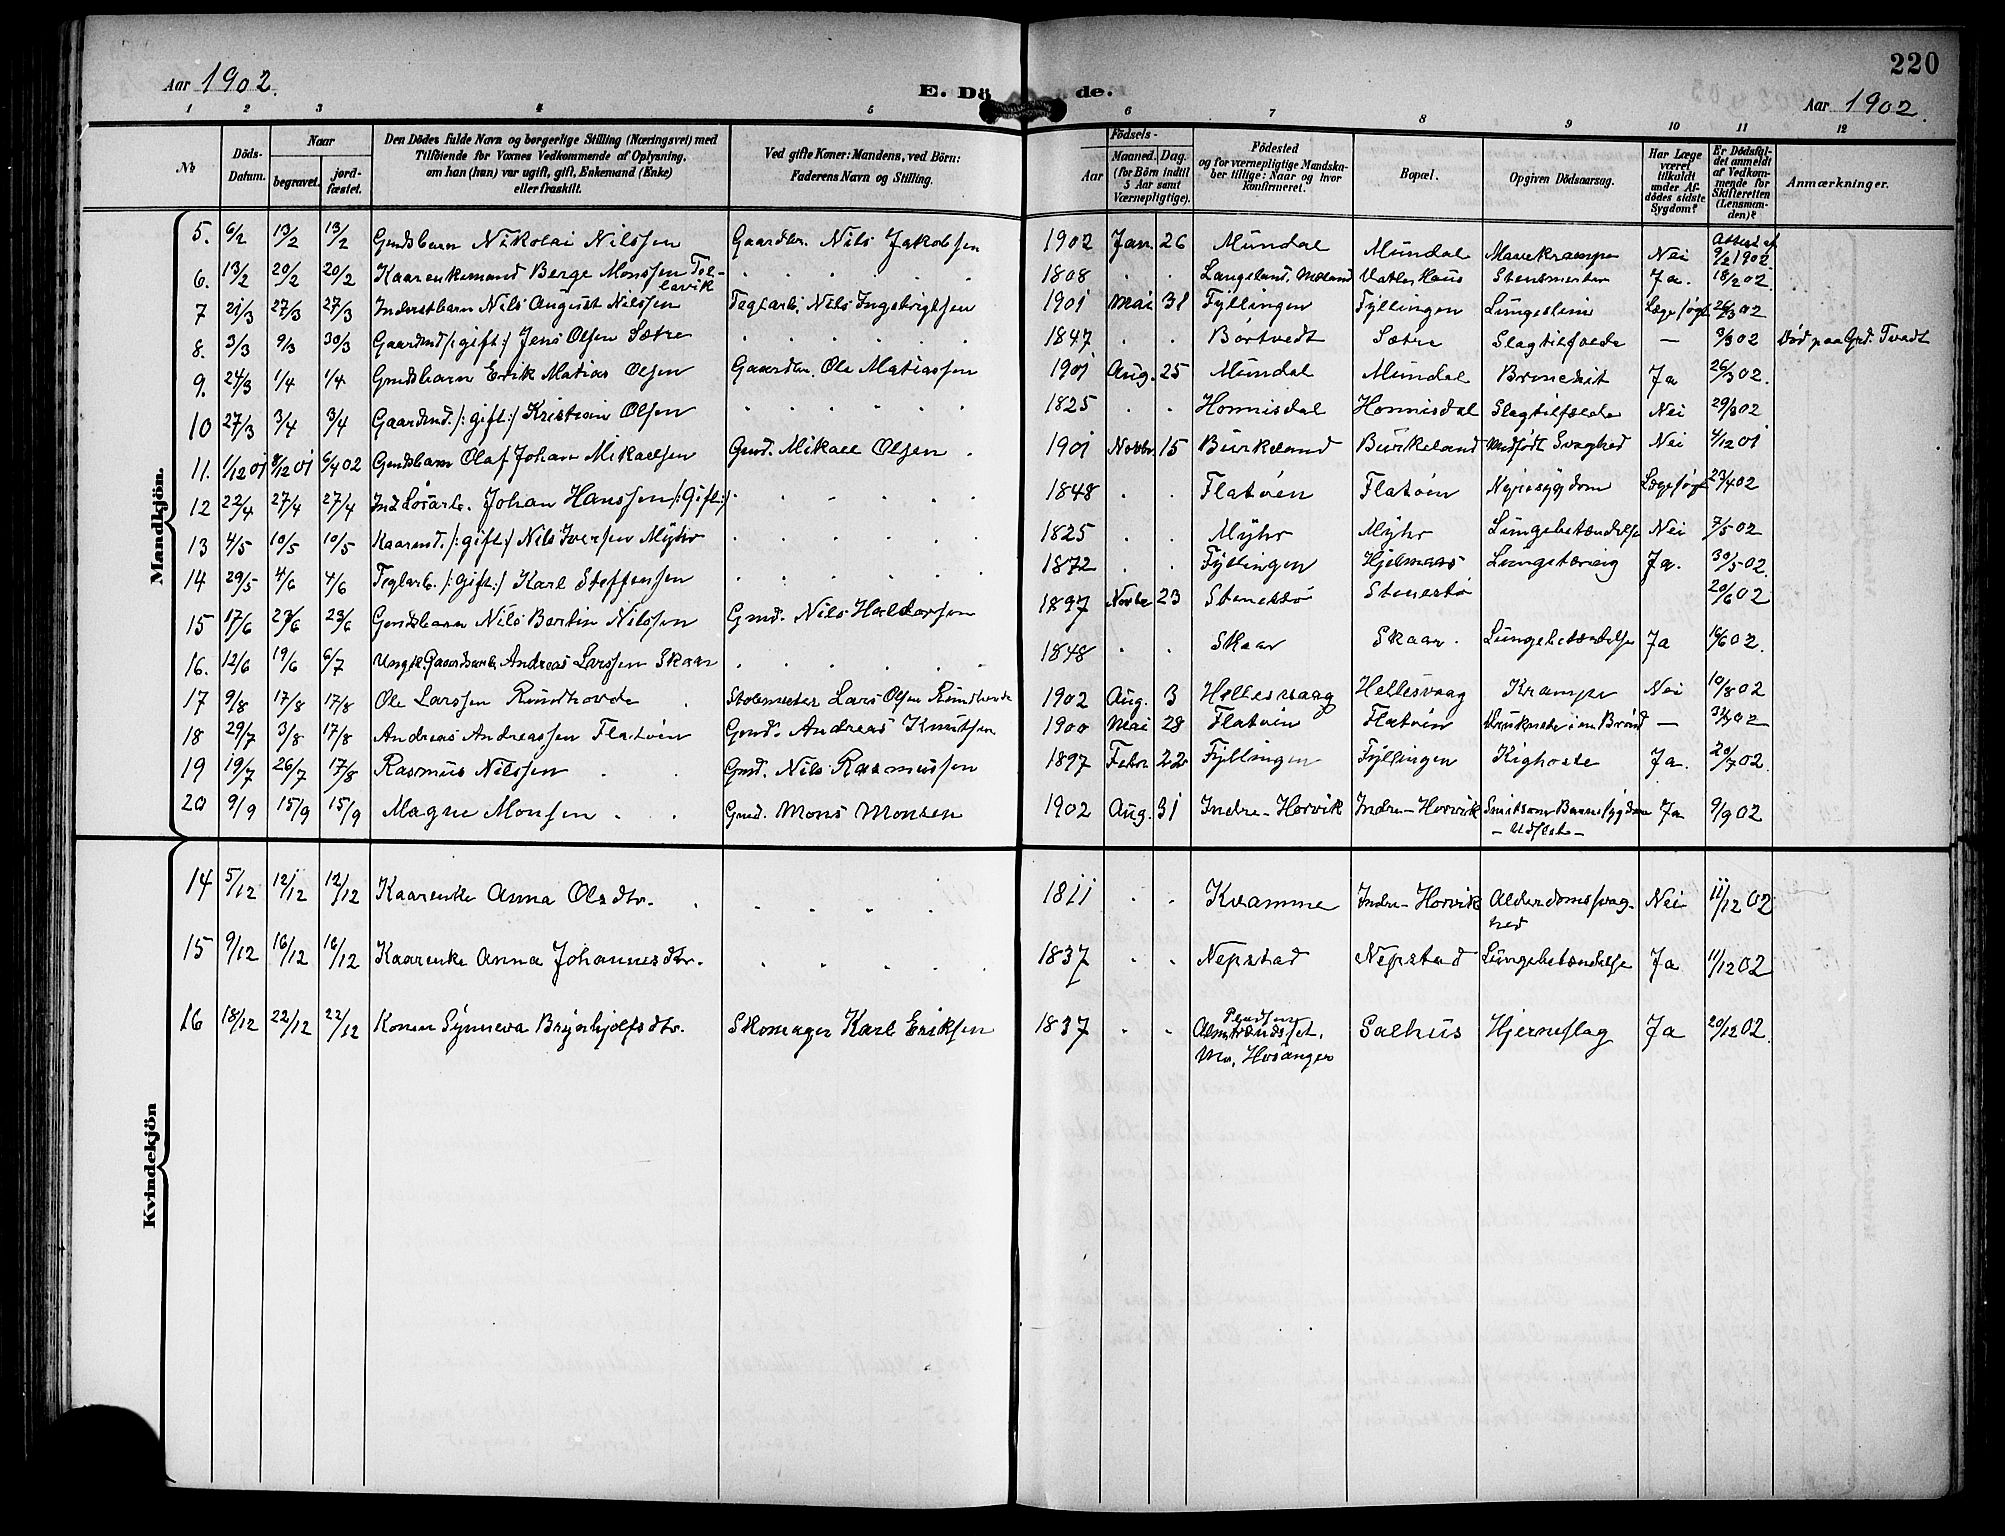 220
Aar 1902.
E. Dö de.
Aar 1902.
1 2 3 4 5 6 7 8 9 10 11 12
No
Döds-Datum.
Naar
begravet.
jord-fæstet.
Den Dödes fulde Navn og borgerlige Stilling (Næringsvei) med
Tilföiende for Voxnes Vedkommende af Oplysning,
om han (hun) var ugift, gift, Enkemand (Enke)
eller fraskilt.
Ved gifte Koner: Mandens, ved Börn:
Faderens Navn og Stilling.
Födsels-
Aar
Maaned. Dag.
(for Börn indtil
5 Aar samt
Værnepligtige).
Födested
og for værnepligtige Mandska-
ber tillige: Naar og hvor
konfirmeret.
Bopæl.
Opgiven Dödsaarsag.
Har Læge
været
tilkaldt
under Af-
dödes sidste
Sygdom?
Er Dödsfal-
det anmeldt
af Vedkom-
mende for
Skifteretten
(Lensman-
den)?
Anmærkninger.
Mandkjön.
5. 6/2 13/2 13/2 Gmdsbarn Nikolai Nilssen Gaardbr. Nils Jakobsen 1902 Jan. 26 Mundal Mundal Mavekrampe Nei Attest af 9/2 1902
6. 13/2 20/2 20/2 Kaarenkemand Berge Monssen Tellevik 1808 Langeland, Mæland Vatlehaus Stensmerter Ja. 18/2 02.
7 21/3 27/3 27/3 Inderstbarn Nils August Nilssen Teglarb. Nils Ingebrigtsen 1901 Mai 31 Fyllingen Fyllingen Lungeslim Læge søgt 26/3 02
8. 3/3 9/3 30/3 Gaardmd /: gift :/ Jens Olsen Sætre 1847 Bortvedt Sætre Slagtilfælde — 9/3 02 Död paa Grd. Tvedt
9. 24/3 1/4 1/4 Gmdsbarn Erik Matias Olsen Gaardbr. Ole Matiassen 1901 Aug. 25 Mundal Mundal Bronchit Ja 26/3 02.
10 27/3 3/4 3/4 Gaardmd. /: gift :/ Kristian Olsen 1825 Honnisdal Honnisdal Slagtilfælde Nei 29/3 02
11. 1/12 01 8/12 01 6/4 02 Gmdsbarn Olaf Johan Mikaelsen Gmd. Mikael Olsen 1901 Novbr. 15 Burkeland Burkeland Medfödt Svaghed Nei 4/12 01
12 22/4 27/4 27/4 Ind. Lösarb. Johan Hanssen /: Gift :/ 1848 Flatöen Flatöen Nyresygdom Læge søgt 23/4 02
13 4/5 10/5 10/5 Kaarmd. /: gift :/ Nils Iversen Myhr 1825 Myhr Myhr Lungebetændelse Nei 7/5 02
14 29/5 4/6 4/6 Teglarb. /: gift :/ Karl Steffensen 1872 Fyllingen Hjelmaas Lungetæring Ja. 30/5 02.
15 17/6 23/6 23/6 Gmdsbarn Nils Bertin Nilssen Gmd. Nils Haldorsen 1897 Novbr 23 Stenestö Stenestö 20/6 02
16. 12/6 19/6 6/7 Ungk. Gaardbarb. Andreas Larssen Skaar 1848 Skaar Skaar. Lungebetændelse Ja 16/6 02.
17 9/8 17/8 17/8 Ole Larssen Rundhovde Stolemester Lars Olsen Rundhovde 1902 Aug. 3 Hellesvaag Hellesvaag Krampe Nei 10/8 02
18 29/7 3/8 17/8 Andreas Andreassen Flatöen Gmd. Andreas Knutsen 1900 Mai 28 Flatöen Flatöen Druknete i en Brönd — 31/7 02
19 19/7 26/7 17/8 Rasmus Nilssen Gmd. Nils Rasmussen 1897 Febr 22 Fyllingen Fyllingen Kighoste Ja. 20/7 02.
20 9/9 15/9 15/9 Magne Monsen Gmd. Mons Monsen 1902 Aug. 31 Indre-Horvik Indre-Horvik Smitsom Barnesygdom — Udslet — Ja 9/9 02
Kvindekjön
14 5/12 12/12 12/12 Kaarenke Anna Olsdtr. 1811 Kvamme Indre-Horvik Alderdomssvaghed Nei 11/12 02
15 9/12 16/12 16/12 Kaarenke Anna Johannesdtr. 1837 Nepstad Nepstad Lungebetændelse Ja 11/12 02
16 18/12 22/12 22/12 Konen Synneva Brynhjolfsdtr. Skomager Karl Eriksen 1837 Hosanger Salhus Hjerneslag Ja 20/12 02.